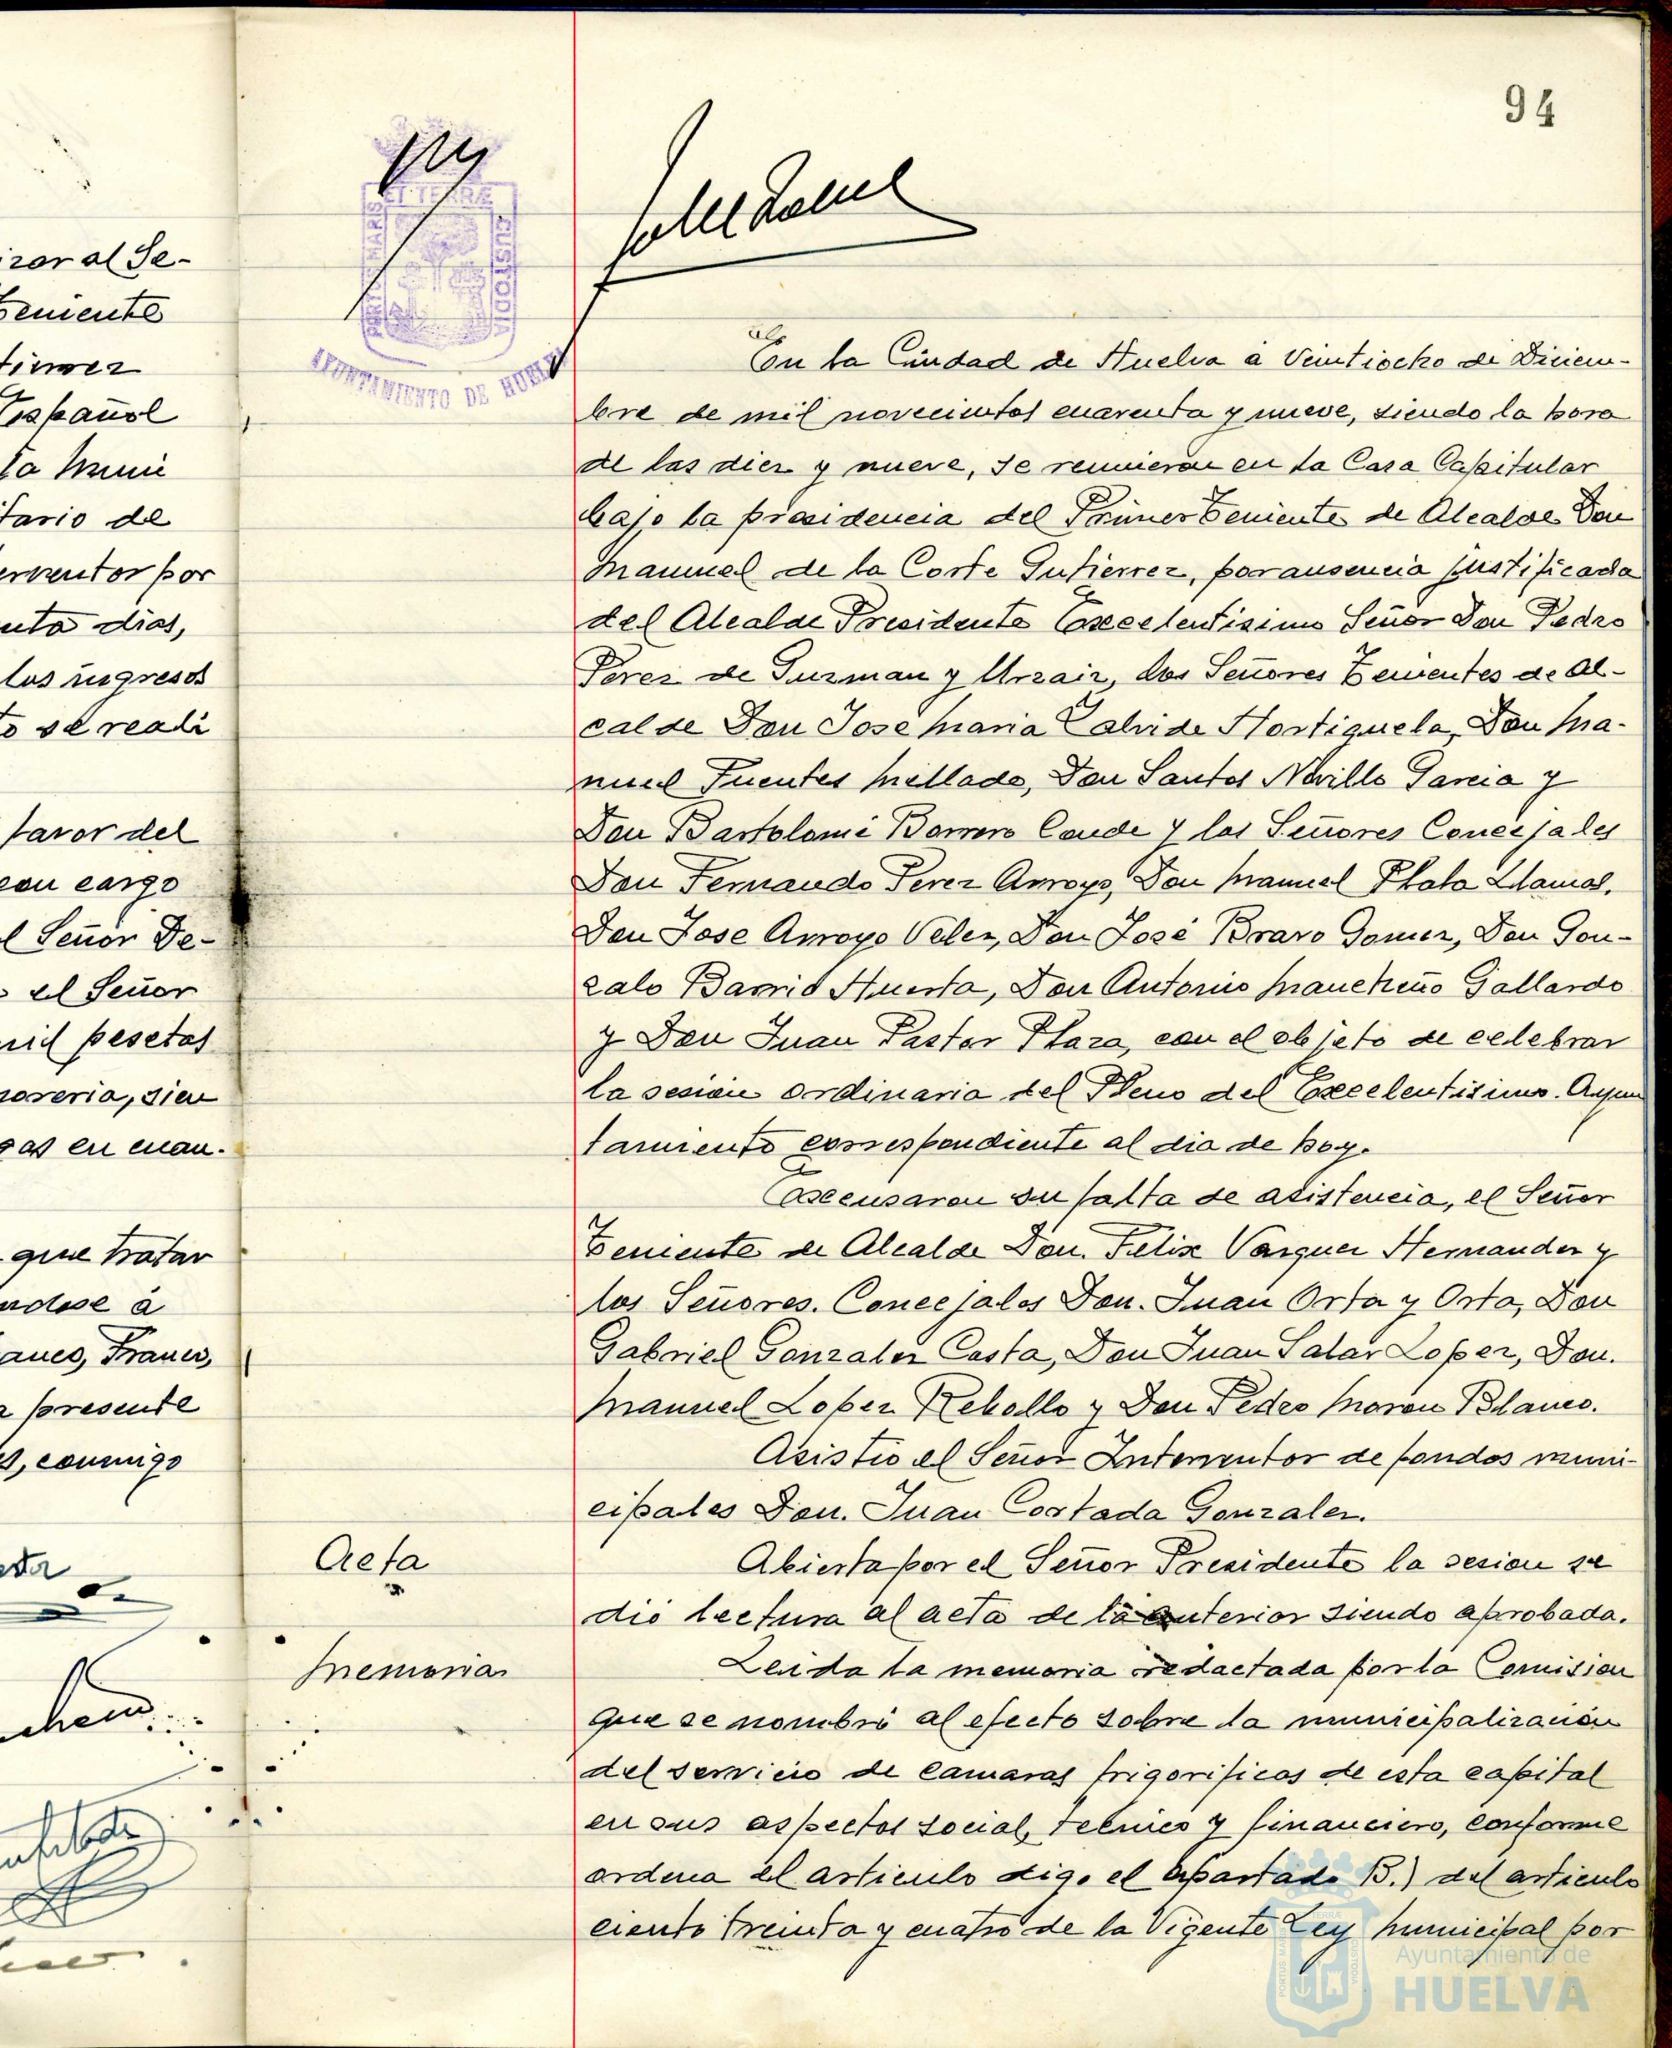 94
PORTUS MARIS ET TERRÆ CUSTODIA
AYUNTAMIENTO DE HUELVA
izar al Se-
Teniente
Español
ta muni
tario de
erventor por
nta dias,
los ingresos
to se reali
favor del
con cargo
l Señor De-
el Señor
mil pesetas
sorería, sien
gas en cuan.
que tratar
ndose á
anco, Franco,
a presente
s, conmigo
Acta
Memoria
En la Ciudad de Huelva á Veintiocho de Diciem-
bre de mil novecientos cuarenta y nueve, siendo la hora
de las diez y nueve, se reunieron en la Casa Capitular
bajo la presidencia del Primer Teniente de Alcalde Don
Manuel de la Corte Gutierrez, por ausencia justificada
del Alcalde Presidente Excelentisimo Señor Don Pedro
Perez de Guzman y Urzaiz, los Señores Tenientes de Al-
calde Don Jose Maria Zalvide Hortiguela, Don Ma-
nuel Fuentes Mellado, Don Santos Novillo Garcia y
Don Bartolomé Borrero Conde y los Señores Concejales
Don Fernando Perez Arroyo, Don Manuel Plata Llamas,
Don Jose Arroyo Velez, Don José Bravo Gomez, Don Gon-
zalo Barrio Huerta, Don Antonio Mancheño Gallardo
y Don Juan Pastor Plaza, con el objeto de celebrar
la sesion ordinaria del Pleno del Excelentisimo. Ayun
tamiento correspondiente al dia de hoy.
Excusaron su falta de asistencia, el Señor
Teniente de Alcalde Don. Felix Vazquez Hernandez y
los Señores. Concejales Don. Juan Orta y Orta, Don
Gabriel Gonzalez Costa, Don Juan Salas Lopez, Don.
Manuel Lopez Rebollo y Don Pedro Moron Blanco.
Asistio el Señor Interventor de fondos muni-
cipales Don. Juan Cortada Gonzalez.
Abierta por el Señor Presidente la sesion se
dió lectura al acta de la anterior siendo aprobada.
Leida la memoria redactada por la Comision
que se nombró al efecto sobre la municipalización
del servicio de camaras frigorificas de esta capital
en sus aspectos social, tecnico y financiero, conforme
ordena el articulo digo el apartado B.) del articulo
ciento treinta y cuatro de la Vigente Ley Municipal por
Ayuntamiento de
HUELVA